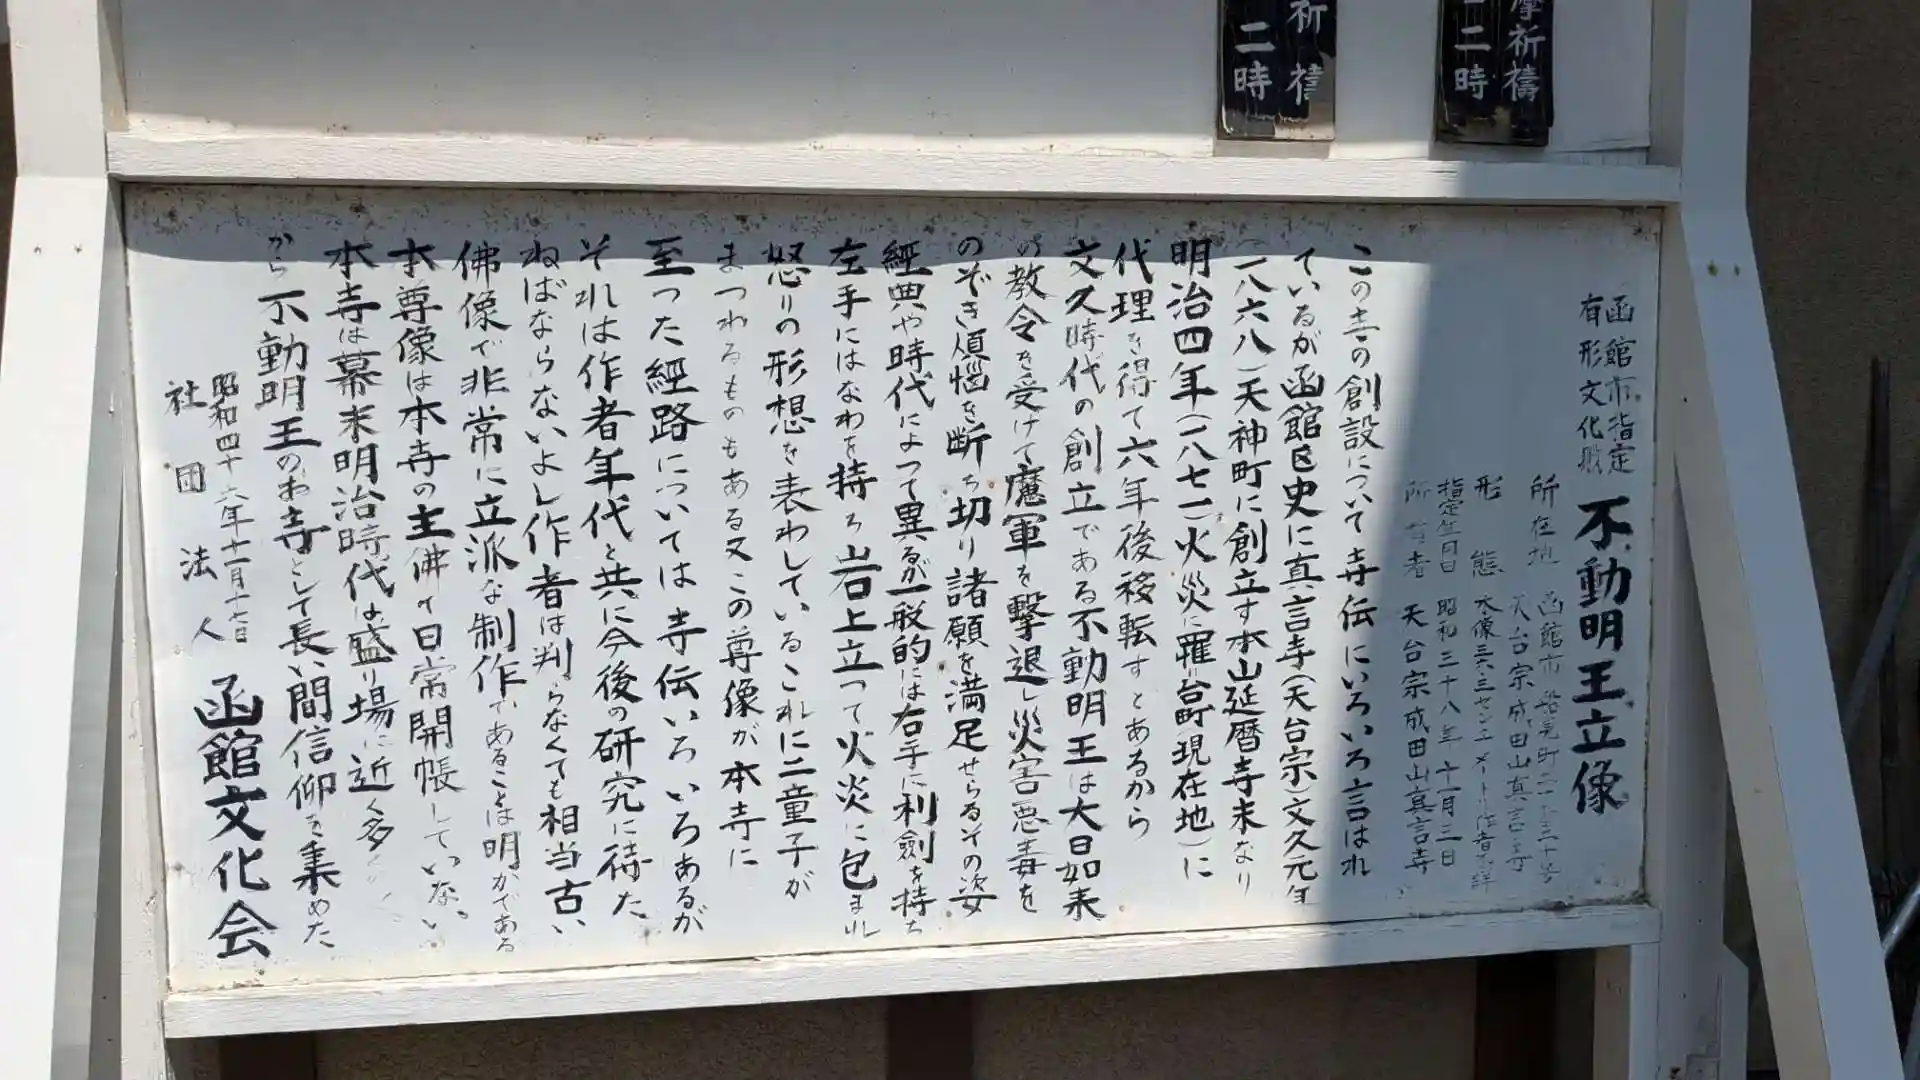 摩祈禱
二時
祈禱
二時
函館市指定
有形文化
不動明王立像
所在地 函館市船見町二
天台宗成田山真言寺
形 態 木像三六・三センチメートル作者不詳
指定年月日 昭和三十八年十一月三日
所有者 天台宗成田山真言寺
この寺の創設について寺伝にいろいろ言はれ
ているが函館区史に真言寺(天台宗)文久元年
(一八六八)天神町に創立す本山延暦寺末なり
明治四年(一八七一)火災に罹り台町(現在地)に
代理を得て六年後移転すとあるから
文久時代の創立である不動明王は大日如来
の教令を受けて魔軍を撃退し災害悪毒を
のぞき煩悩を断ち切り諸願を満足せらるその姿
経典や時代によって異るが一般的には右手に利劍を持ち
左手にはなわを持ち岩上立って火炎に包まれ
怒りの形想を表わしているこれに二童子が
まつわるものもある又この尊像が本寺に
至った経路については寺伝いろいろあるが
それは作者年代と共に今後の研究に待た
ねばならないよし作者は判らなくても相当古い
佛像で非常に立派な制作であることは明かである
本尊像は本寺の主佛で日常開帳していない。
本寺は幕末明治時代は盛り場に近く多く
から不動明王のお寺として長い間信仰を集めた
昭和四十六年十一月十七日
社団法人 函館文化会